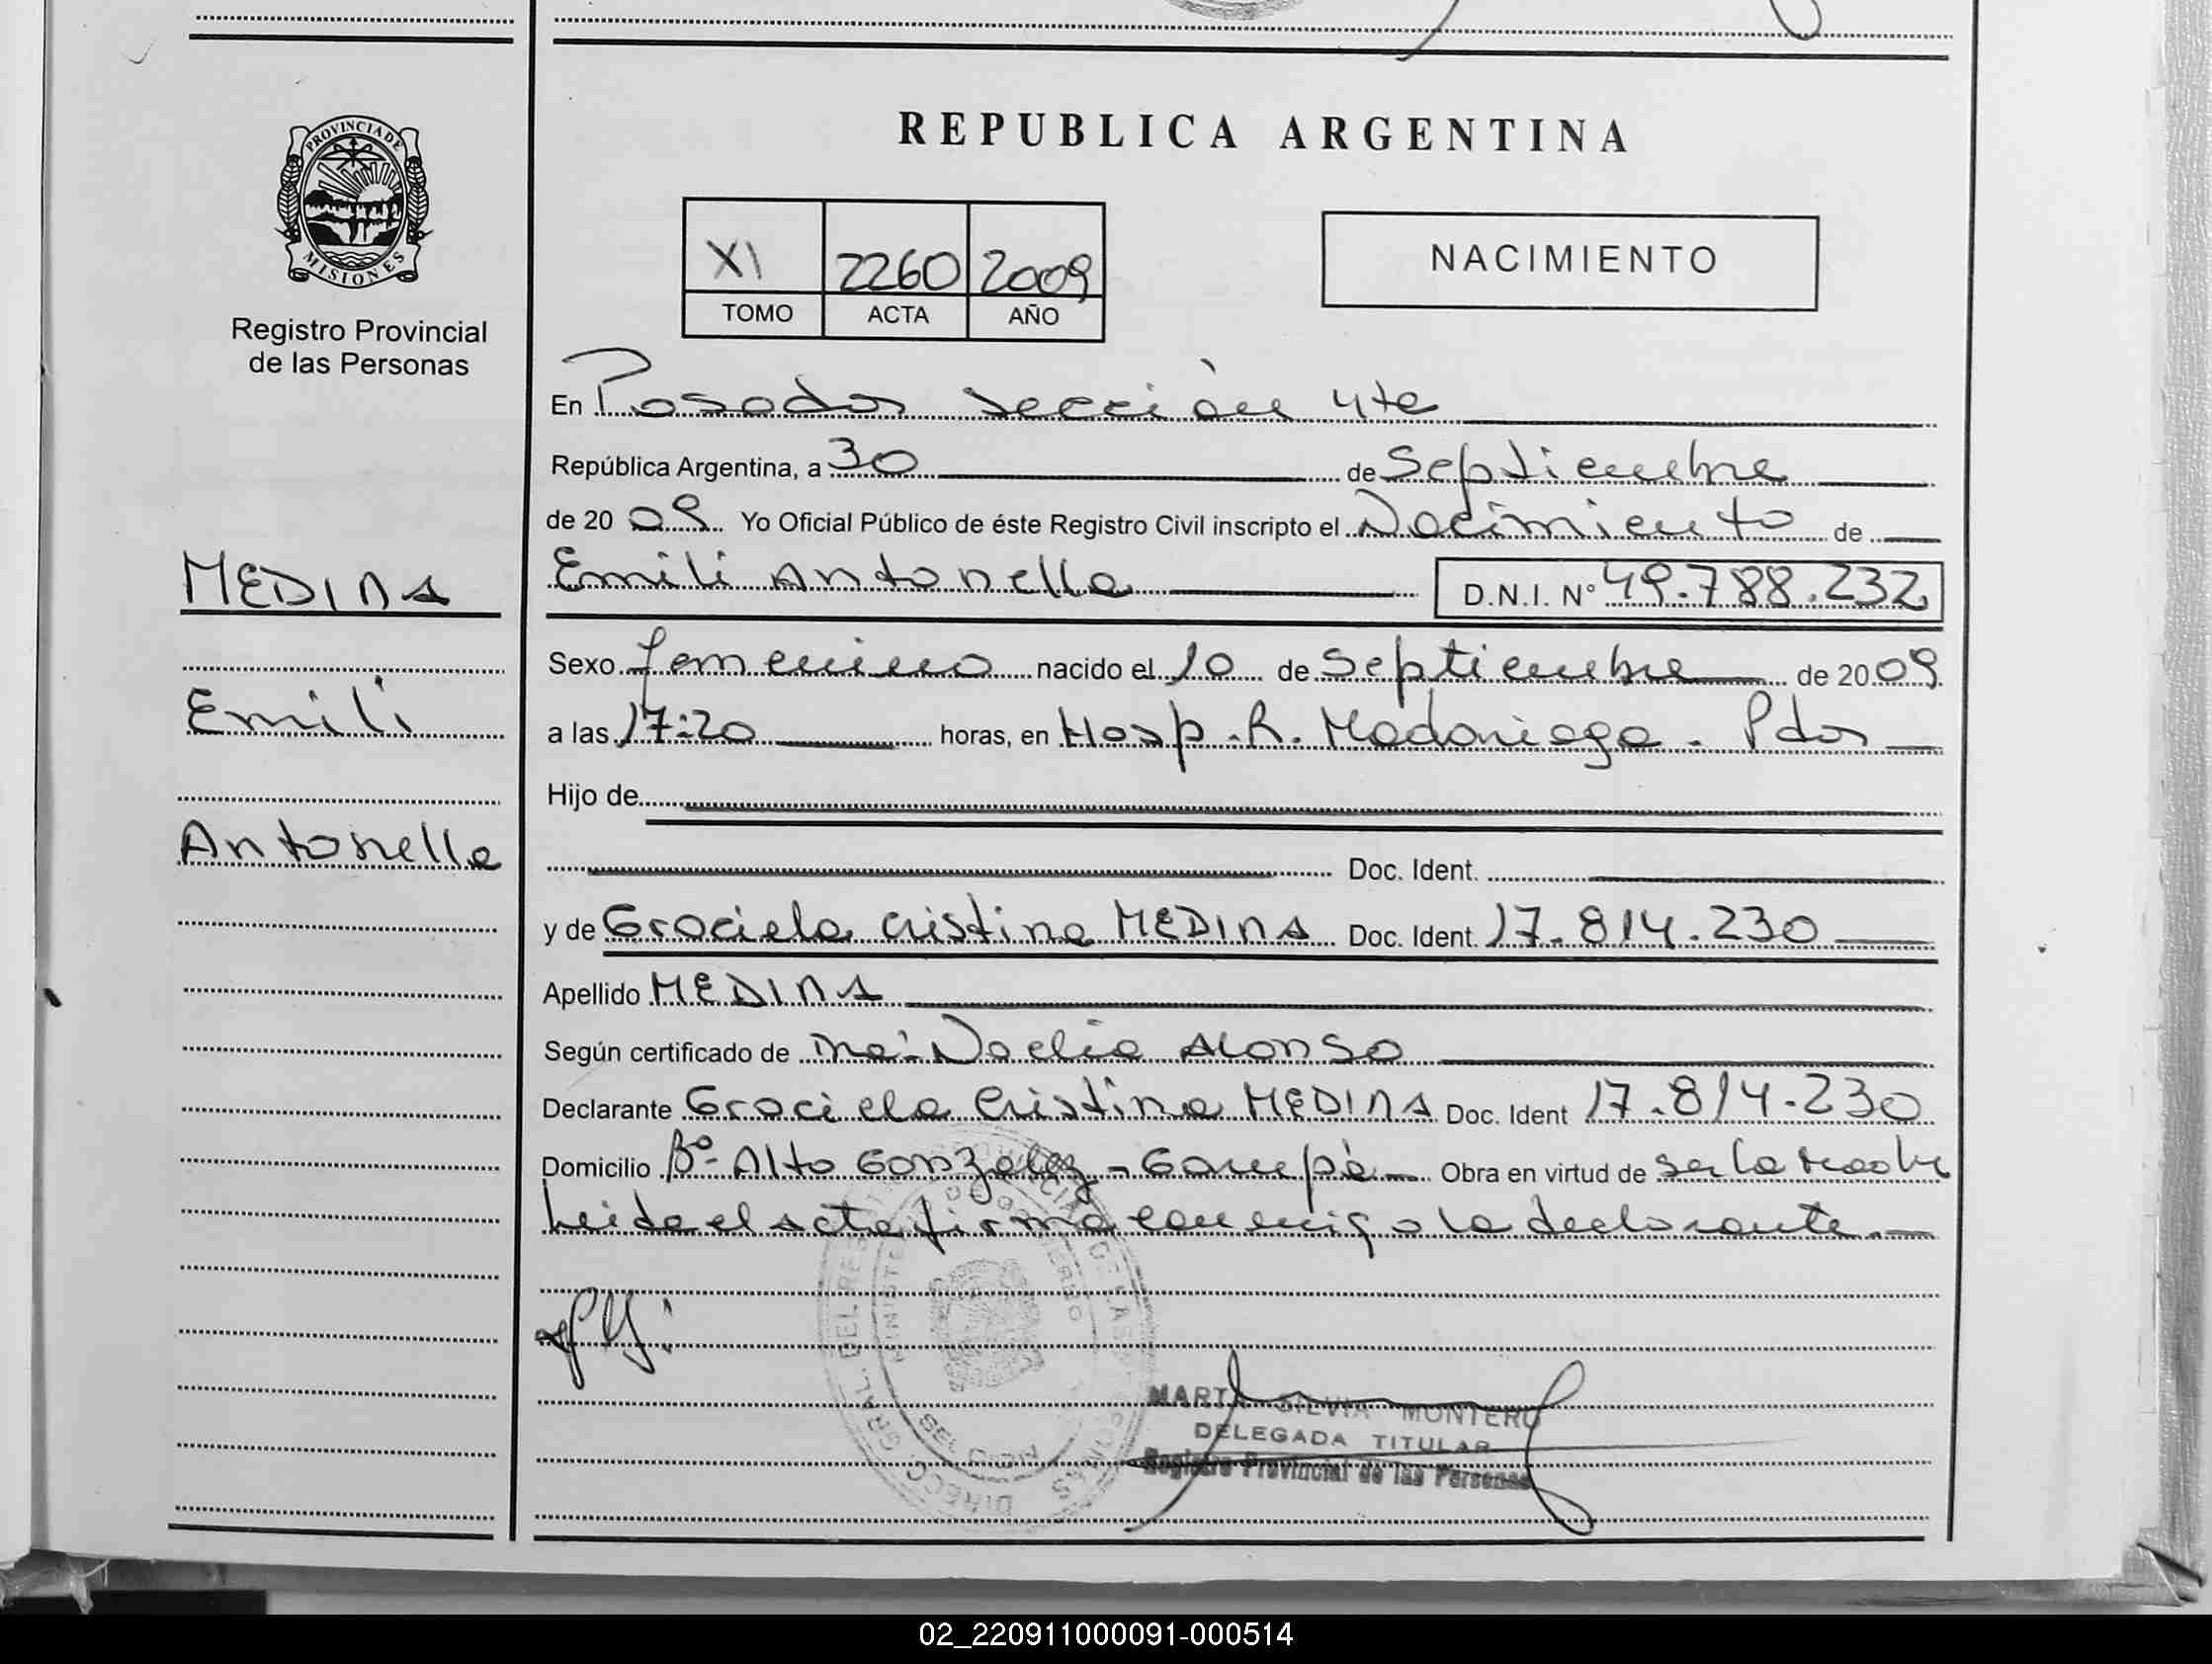 REPUBLICA ARGENTINA
PROVINCIA DE
MISIONES
Registro Provincial
de las Personas
XI 2260 2009
TOMO ACTA AÑO
NACIMIENTO
En Posadas Sección 4ta
República Argentina, a 30 de Septiembre
de 20 09 Yo Oficial Público de éste Registro Civil inscripto el Nacimiento de
MEDINA
Emili Antonella D.N.I. N° 49.788.232
Sexo femenino nacido el 10 de Septiembre de 20 09
Emili
a las 17:20 horas, en Hosp. R. Madariaga - Pdas
Hijo de
Antonella
Doc. Ident.
y de Graciela Cristina MEDINA Doc. Ident. 17.814.230
Apellido MEDINA
Según certificado de Ma. Noelia Alonso
Declarante Graciela Cristina MEDINA Doc. Ident 17.814.230
Domicilio B° Alto Gonzalez - Garupá Obra en virtud de ser la madre
Leida el acta firma conmigo la declarante.-
MARTA SILVIA MONTERO
DELEGADA TITULAR
Registro Provincial de las Personas
02_220911000091-000514